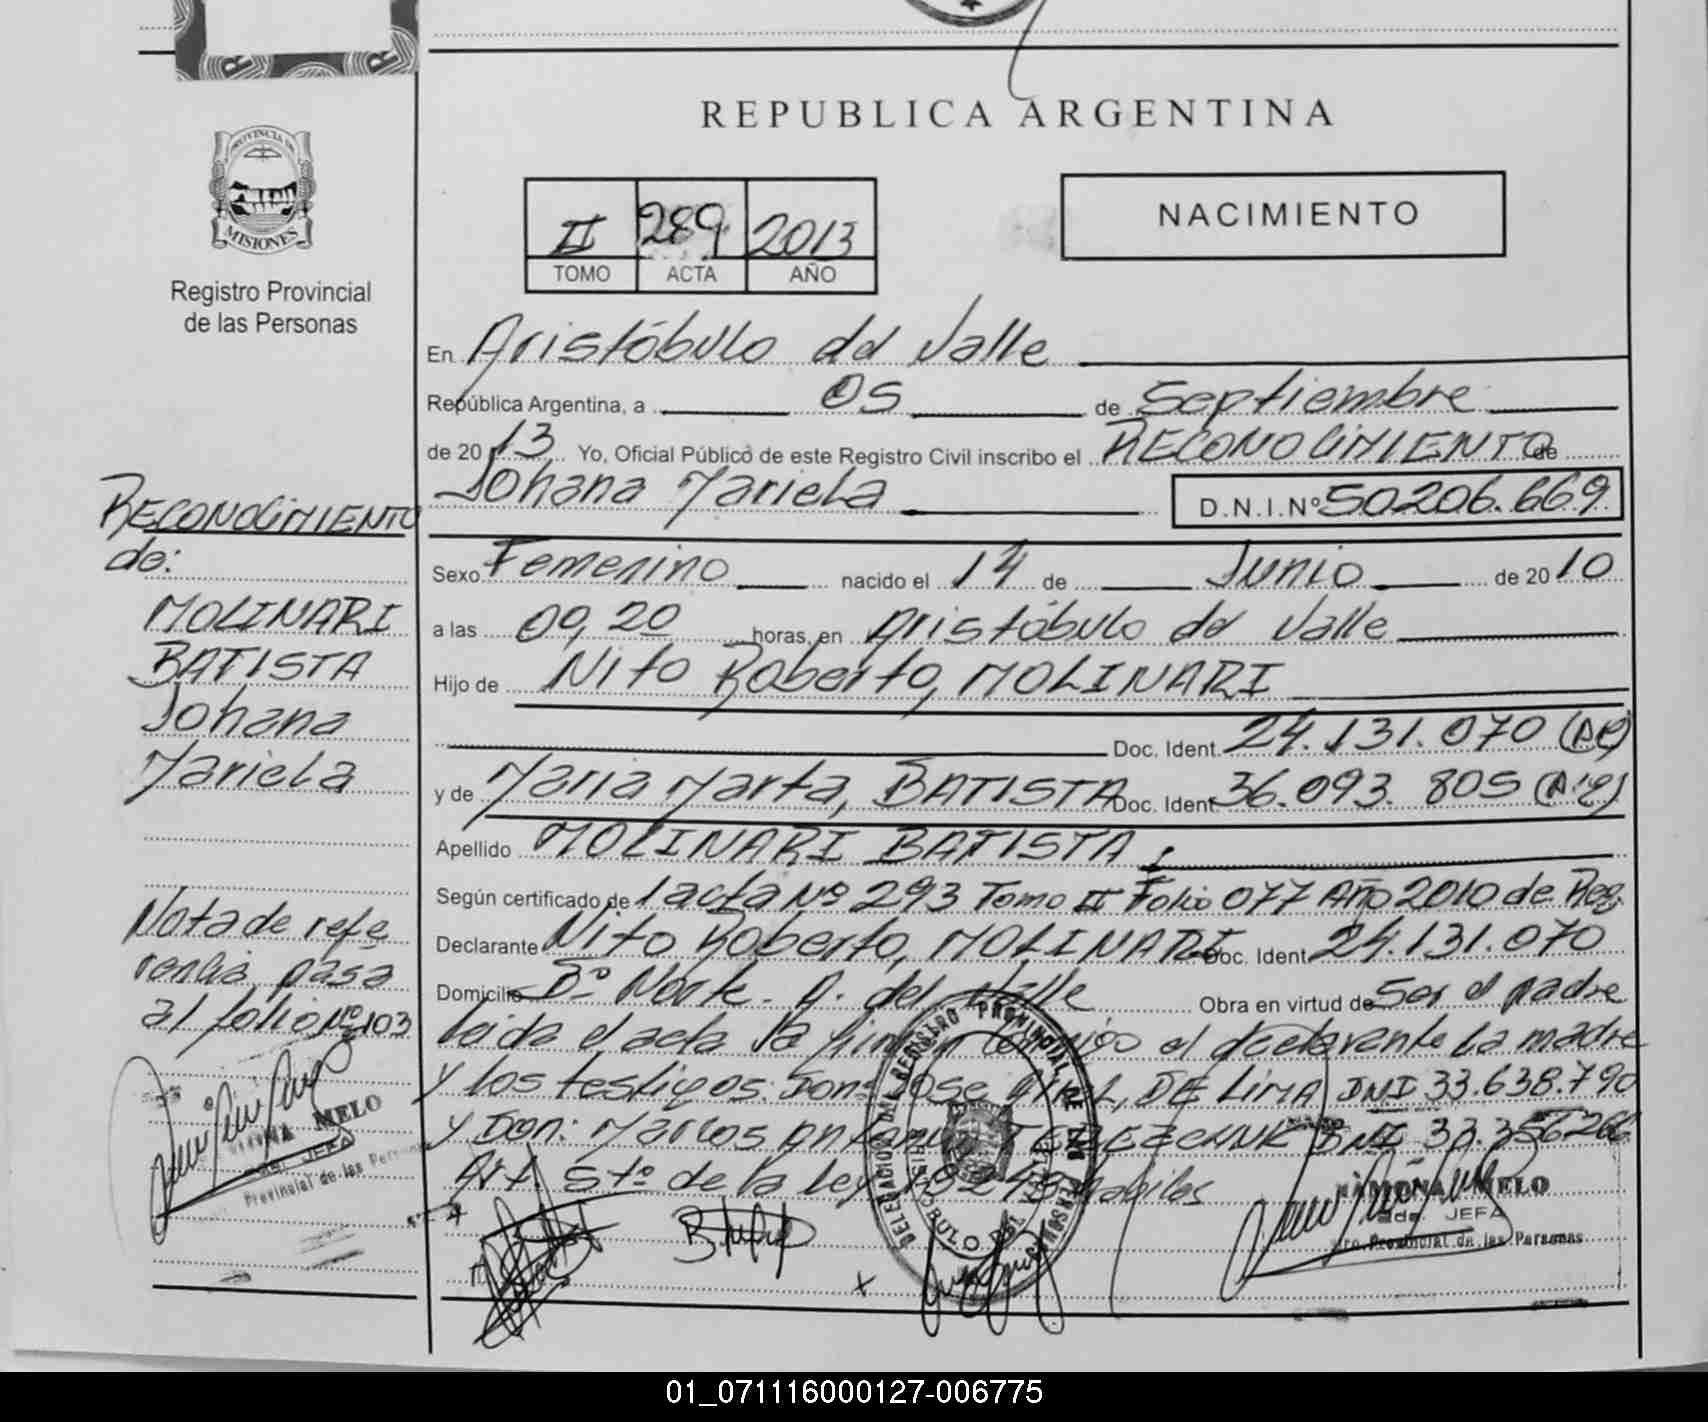 REPUBLICA ARGENTINA
PROVINCIA DE
MISIONES
Registro Provincial
de las Personas
II 289 2013
TOMO ACTA AÑO
NACIMIENTO
En Aristóbulo del Valle
República Argentina, a 05 de Septiembre
de 2013 Yo, Oficial Público de este Registro Civil inscribo el RECONOCIMIENTO de
Johana Mariela D.N.I.Nº 50206.669
Sexo Femenino nacido el 14 de Junio de 2010
a las 09,20 horas, en Aristóbulo del Valle
Hijo de Nito Roberto, MOLINARI
Doc. Ident. 24.131.070 (AC)
y de Maria Marta, BATISTA Doc. Ident. 36.093.805
Apellido MOLINARI BATISTA
Según certificado de l acta Nº 293 Tomo II Folio 077 Año 2010 de Reg
Declarante Nito Roberto, MOLINARI Doc. Ident. 24.131.070
Domicilio Bº Norte. A. del Valle Obra en virtud de Ser el padre
Leida el acta la firman conmigo el declarante la madre
y los testigos: Don: Jose DE LIMA DNI 33.638.790
y Don: Marcos Antonio DNI 33.356.266
Art. 5to de la Ley
RAMONA MELO
JEFA
Provincial de las Personas
RECONOCIMIENTO
de:
MOLINARI
BATISTA
Johana
Mariela
Nota de refe
rencia, pasa
al folio Nº 103
MELO
JEFA
Provincial de las Personas
DELEGACION DEL REGISTRO PROVINCIAL DE LAS PERSONAS
ARISTOBULO DEL VALLE
01_071116000127-006775